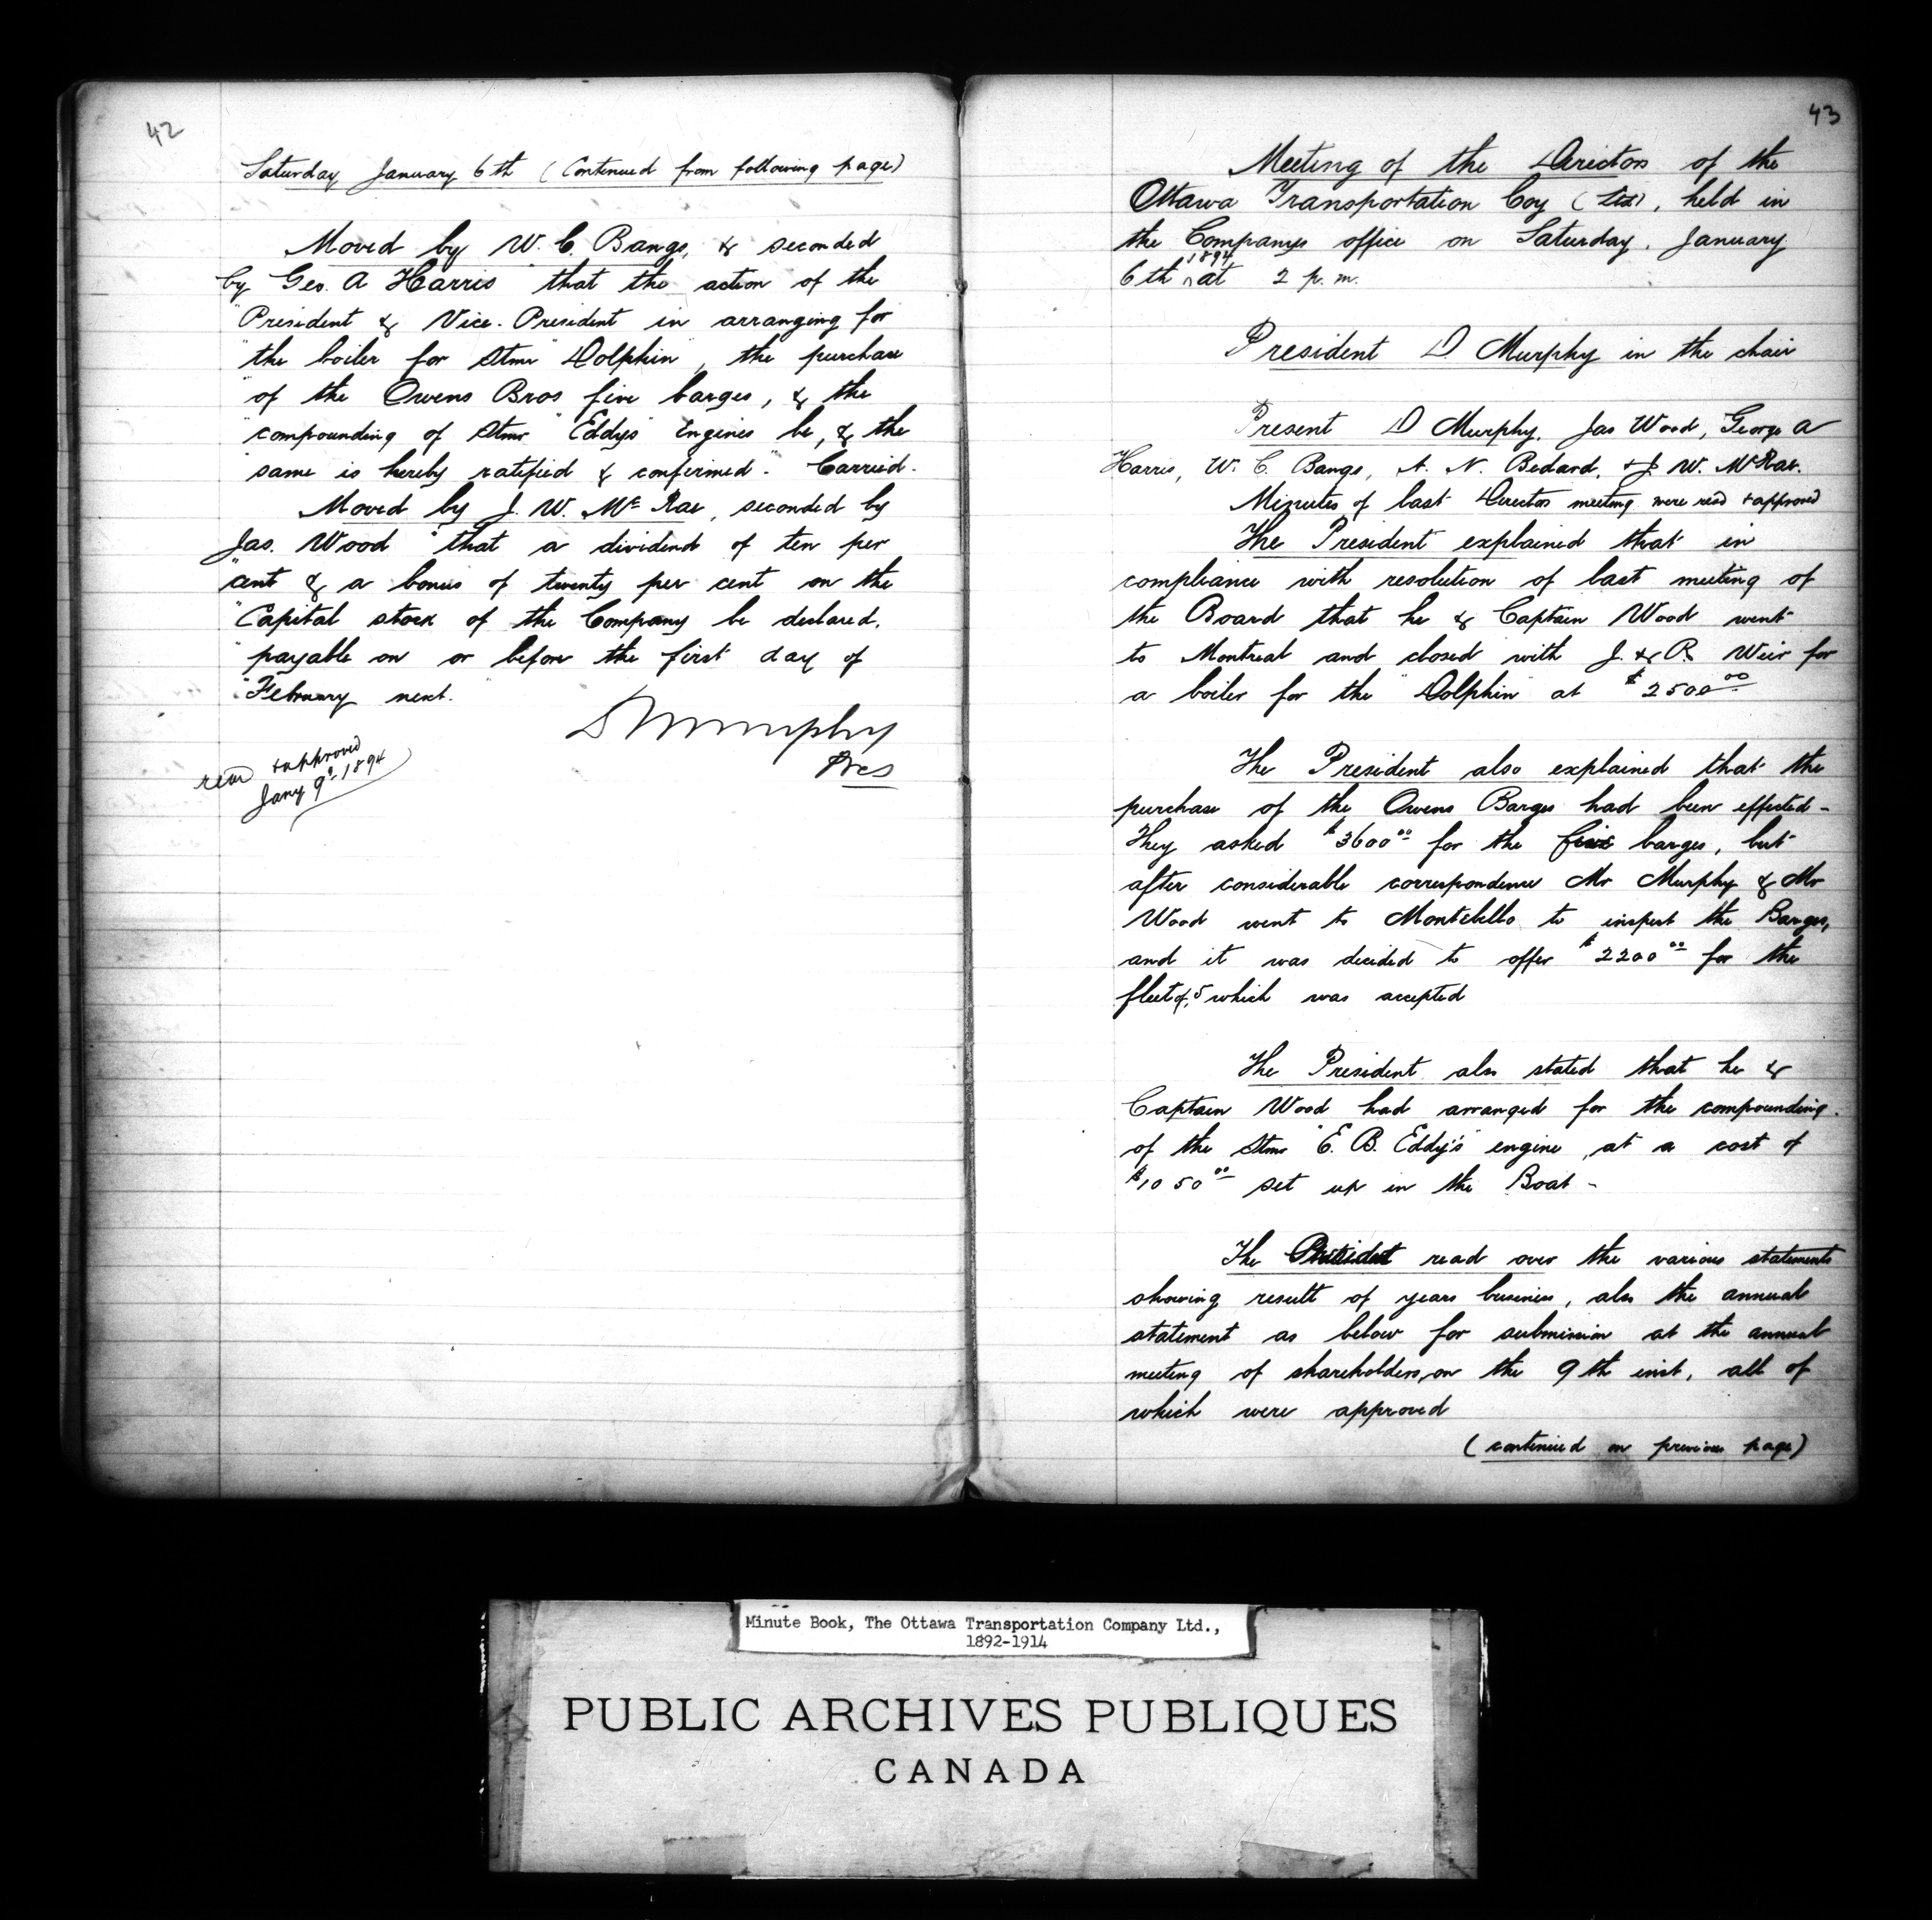 42
Saturday January 6th (Continued from following page)
Moved by W. C. Bangs, & seconded
by Geo. A Harris "that the action of the
"President & Vice-President in arranging for
"the boiler for Stmr "Dolphin", the purchase
"of the Owens Bros five barges, & the
"compounding of Stmr "Eddys" Engines be, & the
"same is hereby ratified & confirmed". Carried.
Moved by J. W. McRae, seconded by
Jas. Wood "that a dividend of ten per
"cent & a bonus of twenty per cent on the
"Capital stock of the Company be declared,
"payable on or before the first day of
"February next."
D Murphy
Pres
read & approved
Jany 9th 1894
43
Meeting of the Directors of the
Ottawa Transportation Coy (Ltd), held in
the Companys office on Saturday, January
6th 1894 at 2 p.m.
President D. Murphy in the chair
Present D Murphy, Jas Wood, George A
Harris, W. C. Bangs, A. N. Bedard, & J. W. McRae.
Minutes of last Directors meeting were read & approved
The President explained that in
compliance with resolution of last meeting of
the Board that he & Captain Wood went
to Montreal and closed with J. & R. Weir for
a boiler for the "Dolphin" at $2500.00
The President also explained that the
purchase of the Owens Barges had been effected -
They asked $3600.00 for the five barges, but
after considerable correspondence Mr Murphy & Mr
Wood went to Montebello to inspect the Barges,
and it was decided to offer $2200.00 for the
fleet of 5 which was accepted
The President also stated that he &
Captain Wood had arranged for the compounding
of the Stmr "E. B. Eddy's" engine, at a cost of
$1050.00 set up in the Boat -
The President read over the various statements
showing result of years business, also the annual
statement as below for submission at the annual
meeting of shareholders, on the 9th inst, all of
which were approved
(continued on previous page)
Minute Book, The Ottawa Transportation Company Ltd.,
1892-1914
PUBLIC ARCHIVES PUBLIQUES
CANADA